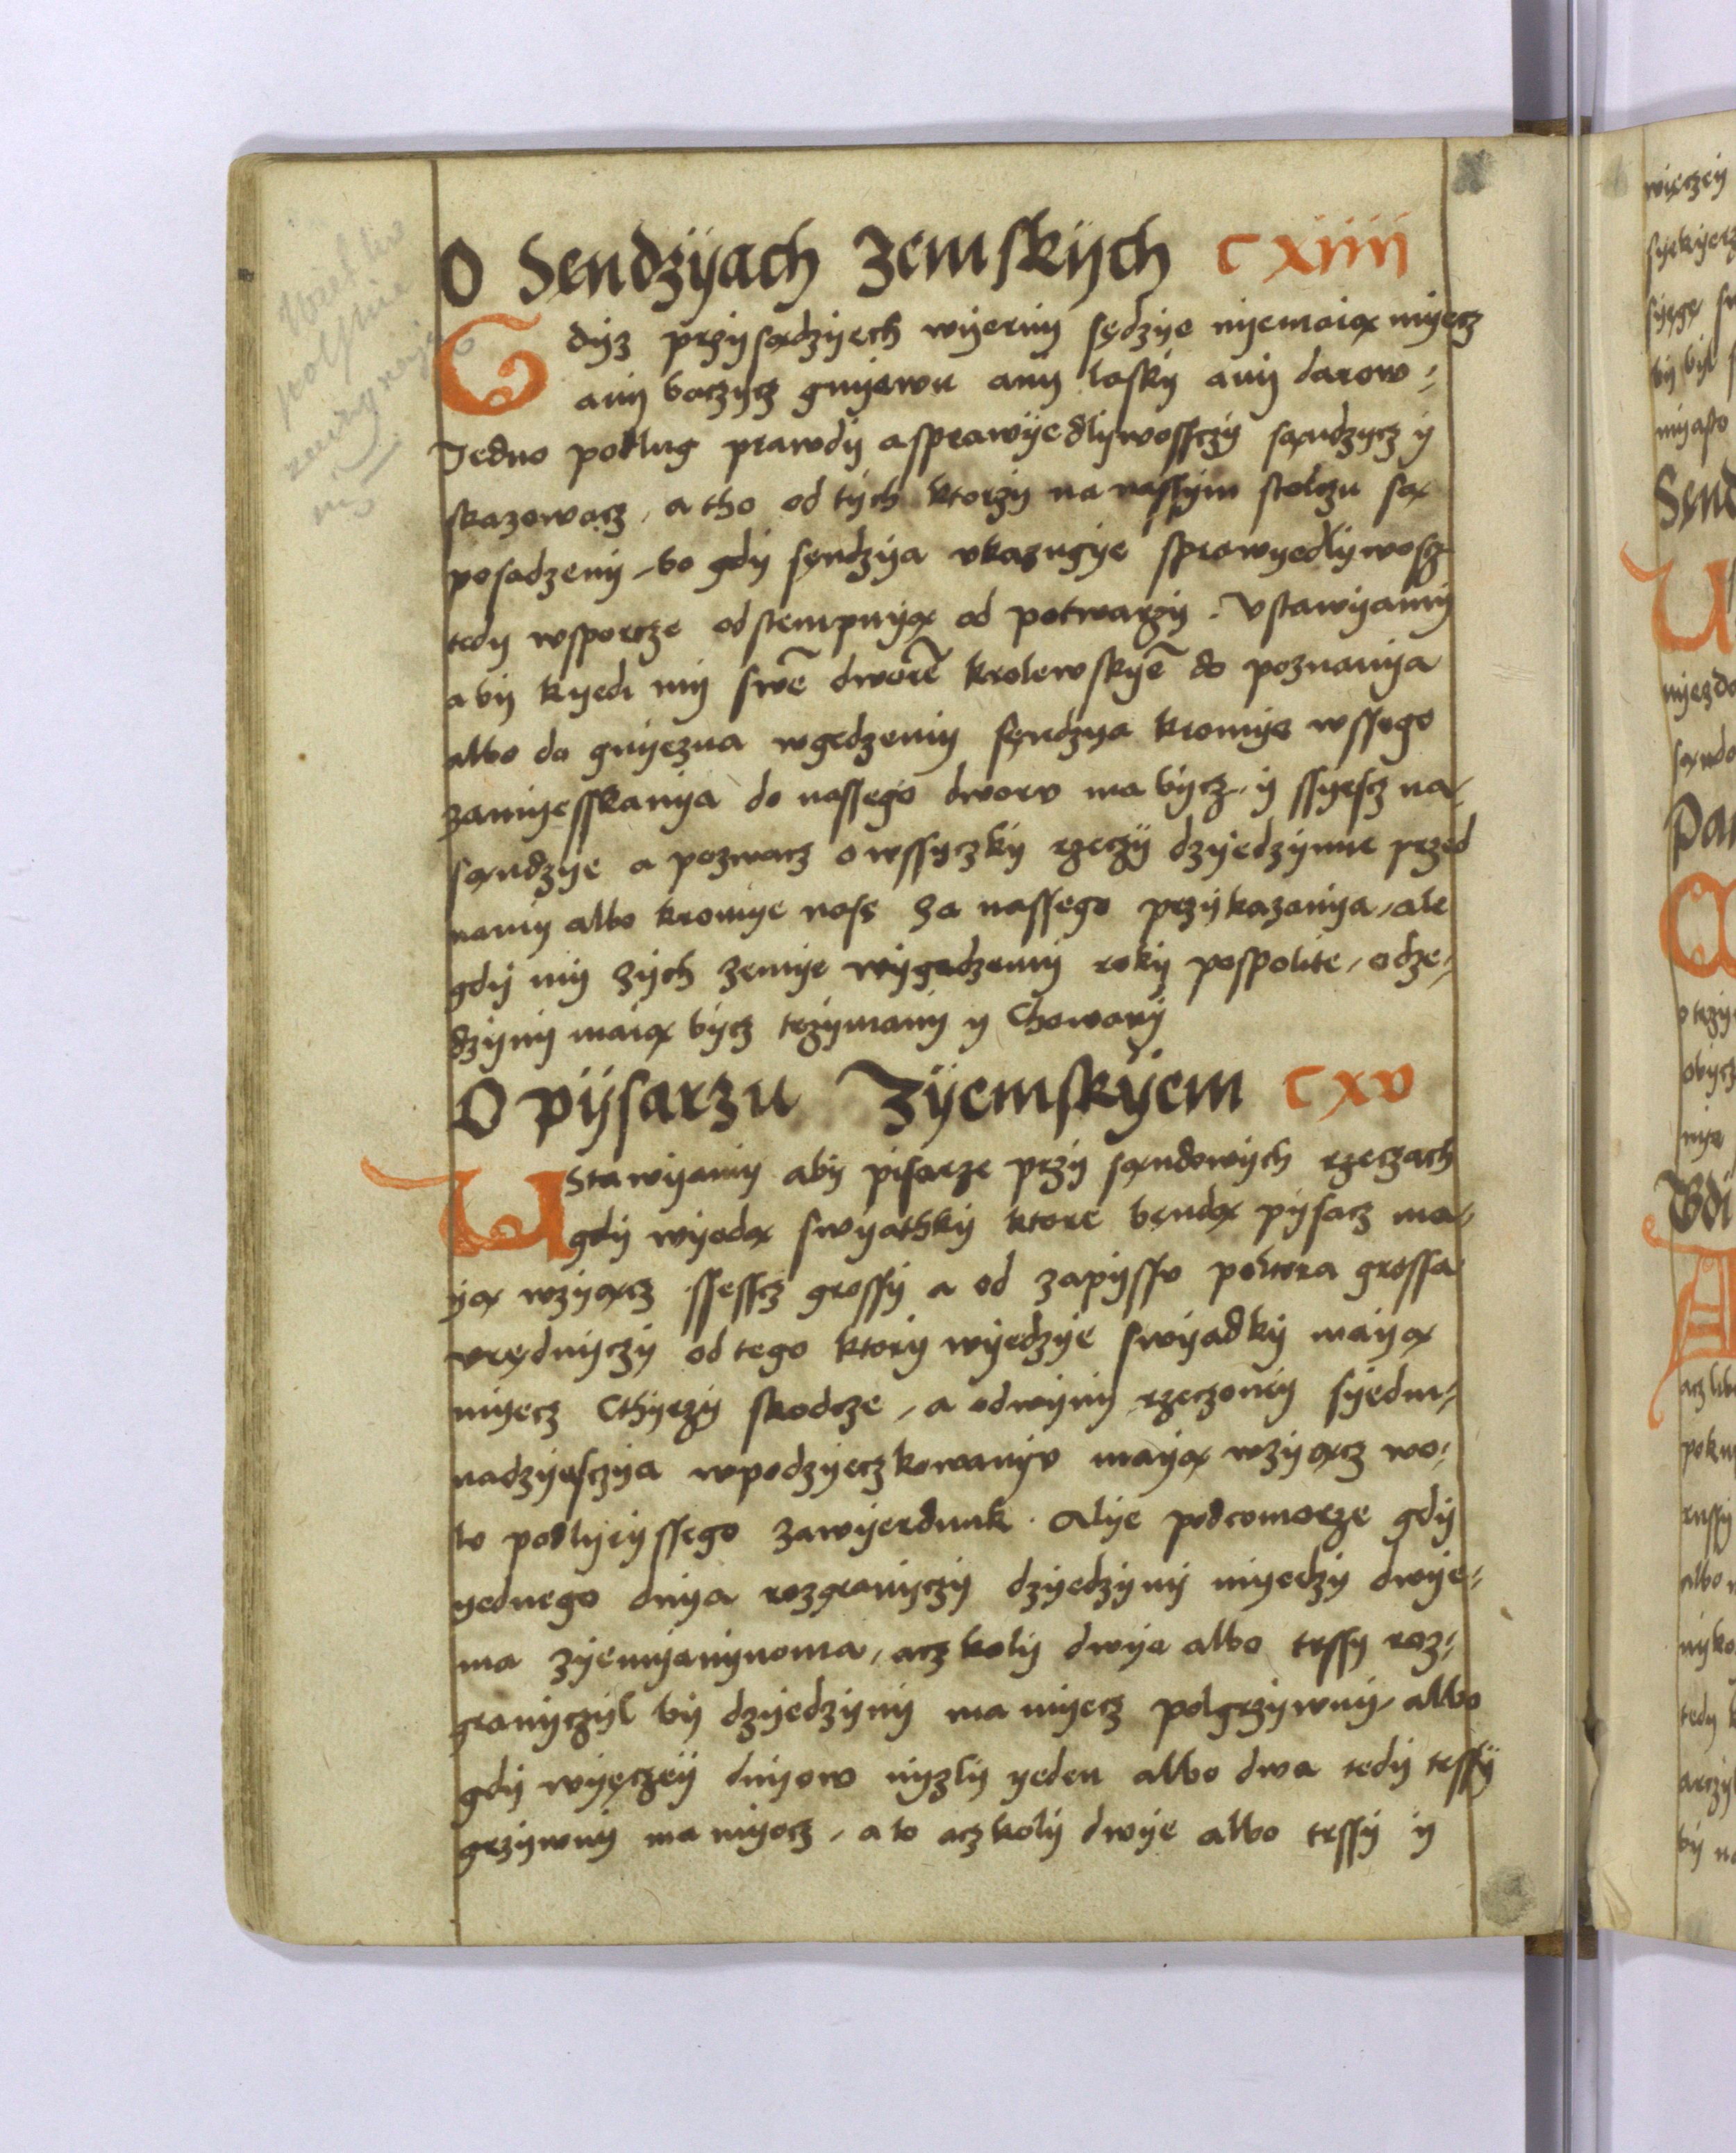 O Sendzyach Zemskych CXIIII
Gdyz przysądzyech wyerny sędzye nyemaią myecz
any baczycz gnyewu any lasky any darow⸗
Jedno podlug prawdy asprawyedlywossczy sąndzycz y
skazowacz, a tho od tych ktorzy na nassym stolczu są
posadzeny, bo gdy sęndzya vkazugye sprawyedlywoscz
tedy wsporcze odstempnyą od potwarzy. Vstawyamy
aby kyedi my swē dworē krolewskyē do poznanya
albo do gnyezna wgedzemy sęndzya kromye wssego
zamyesskanya do nassego dworu ma bycz, y ssyescz na⸗
sąndzye a pozwacz owssyczky rzeczy dzyedzynne przed
namy albo kromye nass za nassego przykazanya, ale
gdy my zych zemye wygedzemy roky pospolite, odze⸗
dzyny maią bycz trzymany y Chowany
O pysarzu Zyemskyem CXV
Ustawyamy aby pisarze przy sąndowych rzeczach
gdy wyedą swyathky ktore bęndą pysacz ma⸗
yą wzyącz ssessez grossy a od zapyssv poltora grossa
vrędnyczy od tego ktory wyedzye swyadky mayą
myecz Cthyrzy skodcze, a odwyny rzeczoney syedm⸗
nadzyesczya wpodzyeczkowanyv mayą wzyącz wo⸗
to podlyeyssego zawyerdunk. Alye podcomorze gdy
yednego dnya rozgranyczy dzyedzyny myedzy dwye⸗
ma zyemyanynoma, aczkoly dwye albo trssy roz⸗
granyczyl by dzyedzyny ma myecz polgrzywny, albo
gdy wyęczey dnyow nyzly yeden albo dwa tedy trssy
grzywny ma myecz, a to aczkoly dwye albo trssy y